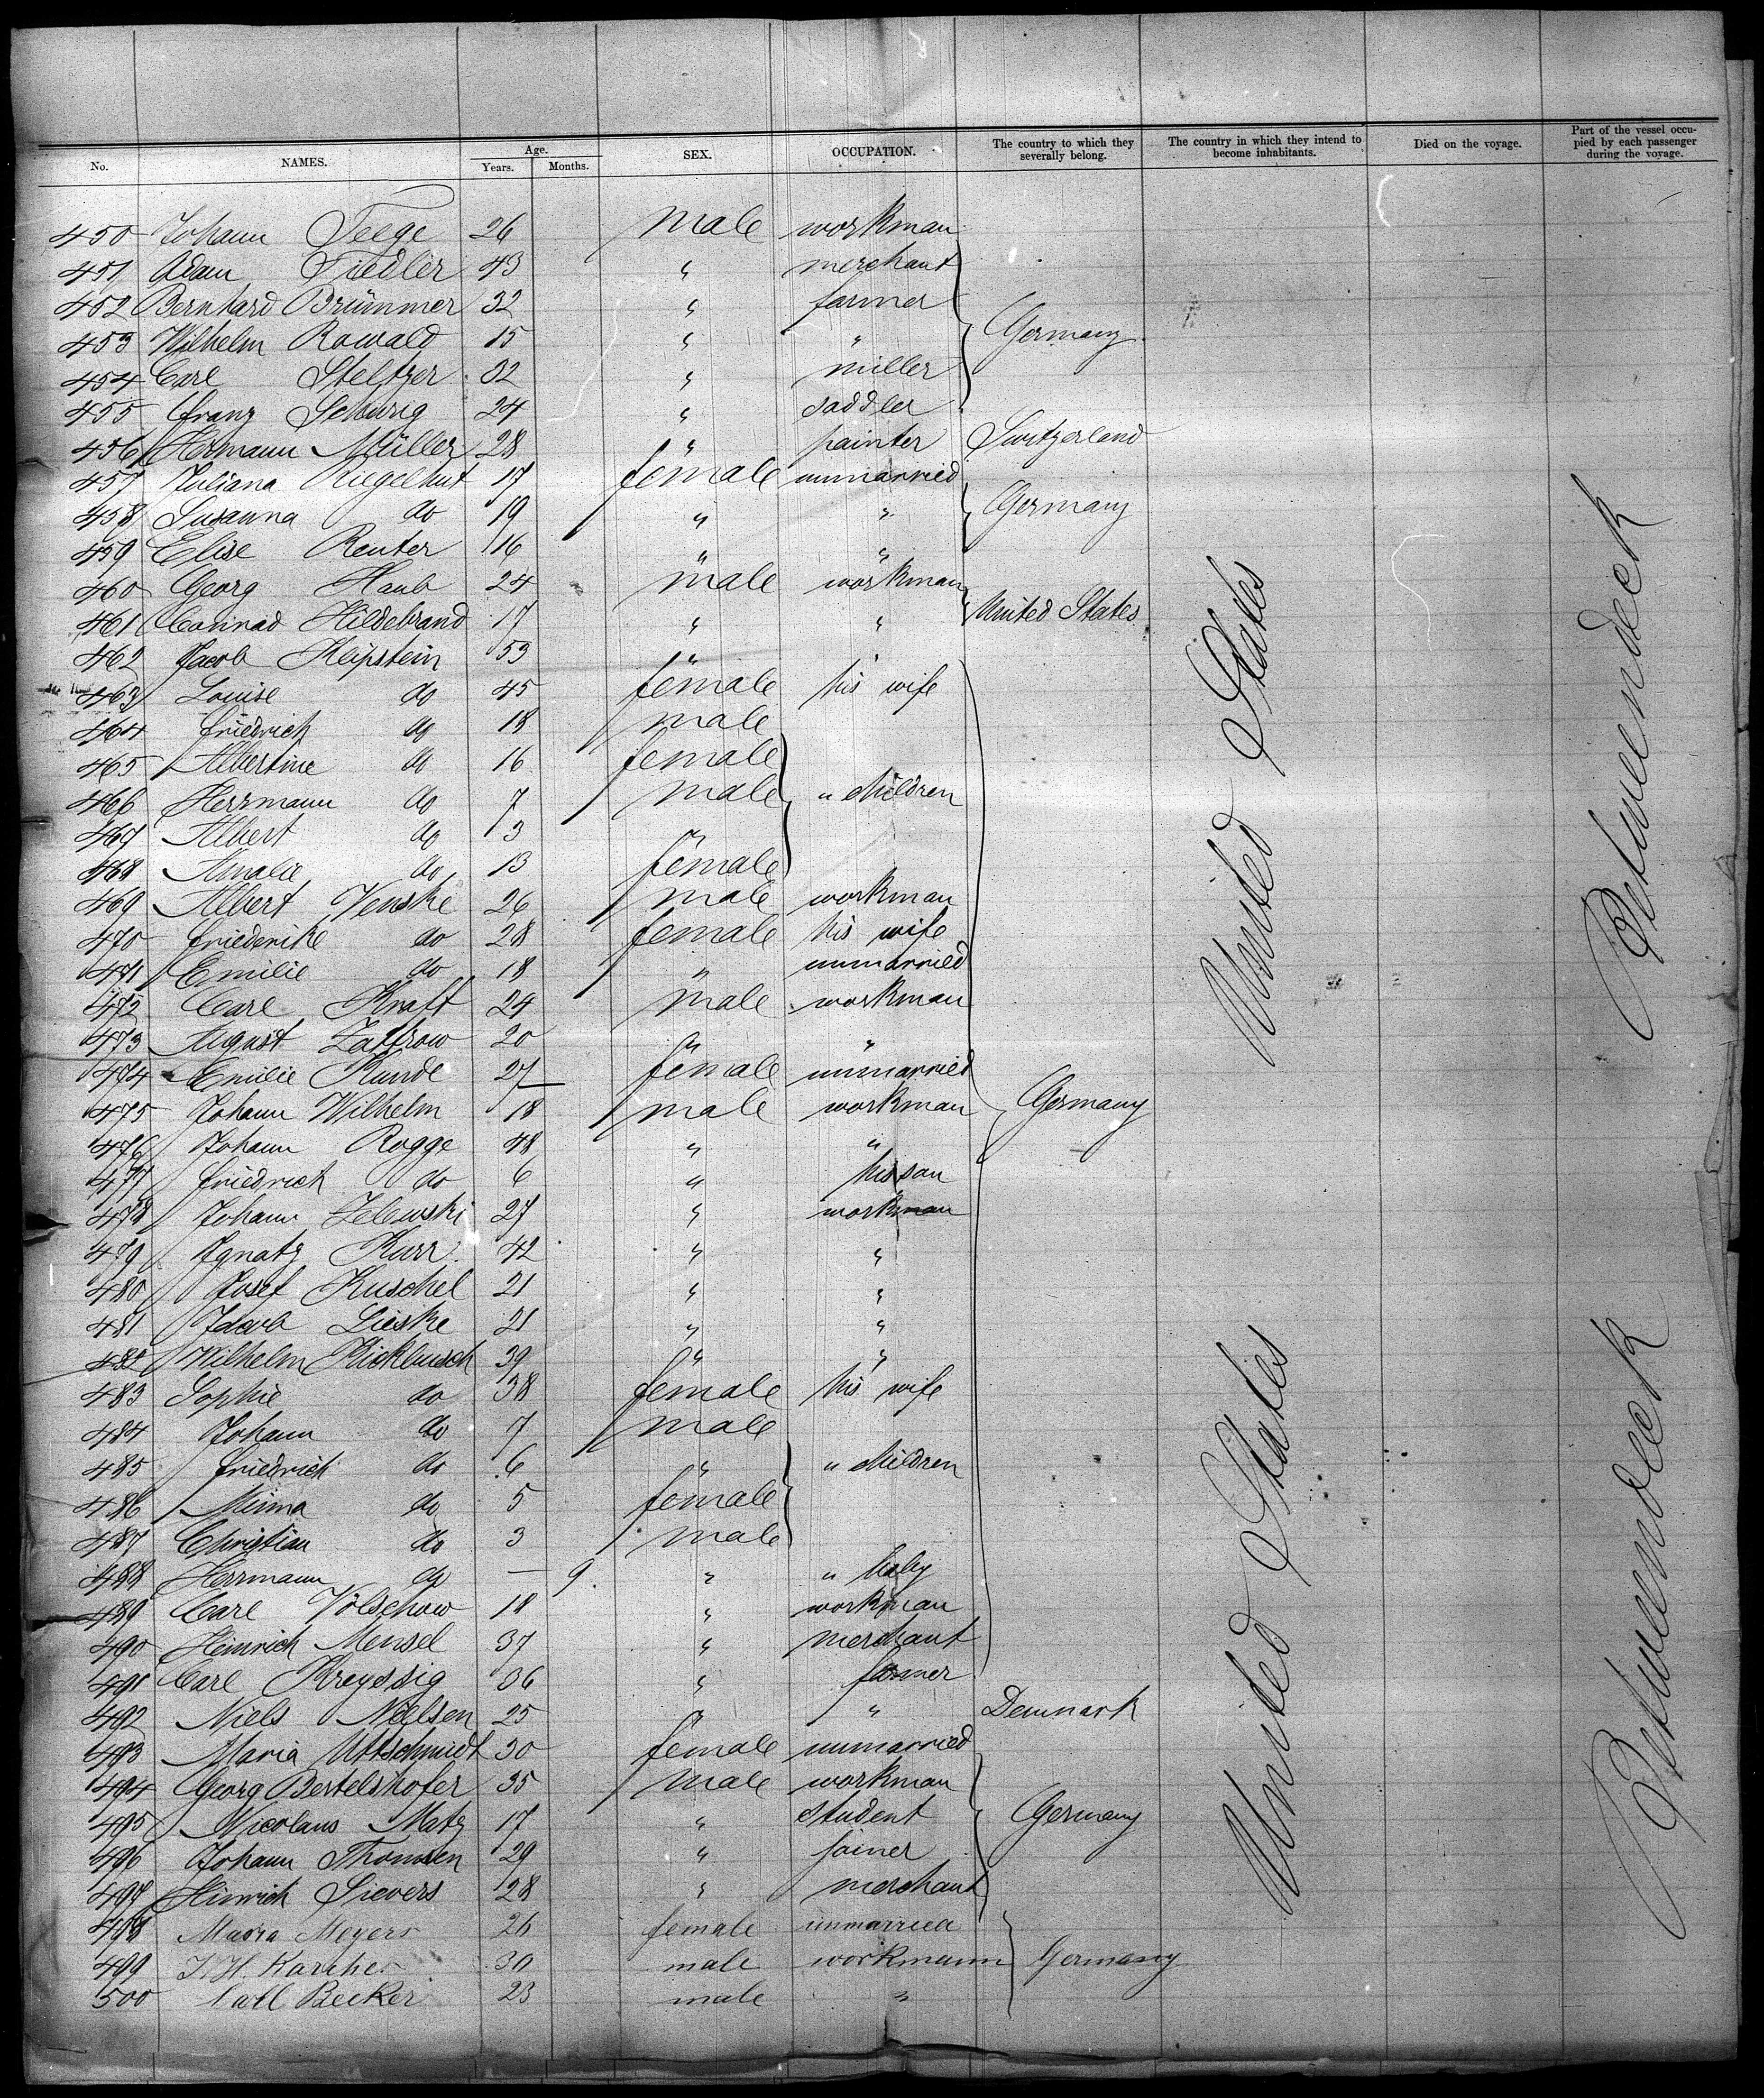 No. NAMES. Age. Years. Months. SEX. OCCUPATION. The country to which they severally belong. The country in which they intend to become inhabitants. Died on the voyage. Part of the vessel occupied by each passenger during the voyage.
450 Johann Teege 26 male workman
451 Adam Fiedler 43 " merchant
452 Bernhard Brümmer 32 " farmer
453 Wilhelm Rowald 15 " " Germany
454 Carl Steltzer 32 " miller
455 Franz Schurig 24 " saddler
456 Hermann Müller 28 " painter Switzerland
457 Juliana Riegelhut 17 female unmarried
458 Susanna do 19 " " Germany
459 Elise Reuter 16 " "
460 Georg Haub 24 male workman
461 Conrad Hildebrand 17 " " United States
462 Jacob Klipstein 53 " "
463 Louise do 45 female his wife
464 Friedrich do 18 male
465 Albertine do 16 female
466 Herrmann do 7 male " children
467 Albert do 3 "
468 Amalie do 13 female
469 Albert Venske 26 male workman
470 Friederike do 28 female his wife
471 Emilie do 18 " unmarried
472 Carl Kraft 24 male workman
473 August Zastrow 20 " "
474 Emilie Kunde 27 female unmarried
475 Johann Wilhelm 18 male workman Germany
476 Johann Rogge 48 " "
477 Friedrich do 6 " his son
478 Johann Zelewski 27 " workman
479 Ignatz Kurr 42 " "
480 Josef Kuschel 21 " "
481 Jacob Lieske 21 " "
482 Wilhelm Kickbusch 39 " "
483 Sophie do 38 female his wife
484 Johann do 7 male
485 Friedrich do 6 " " children
486 Minna do 5 female
487 Christian do 3 male
488 Herrmann do — 9 " " baby
489 Carl Völschow 18 " workman
490 Heinrich Mensel 37 " merchant
491 Carl Kreyssig 36 " farmer
492 Niels Nielsen 25 " " Denmark
493 Maria Uttschmidt 30 female unmarried
494 Georg Bertelshofer 35 male workman
495 Nicolaus Matz 17 " student Germany
496 Johann Thomsen 29 " joiner
497 Hinrich Sievers 28 " merchant
498 Maria Meyers 26 female unmarried
499 Karcher 30 male workmann Germany
500 Carl Becker 23 male "
United States
United States
Betweendeck
Betweendeck